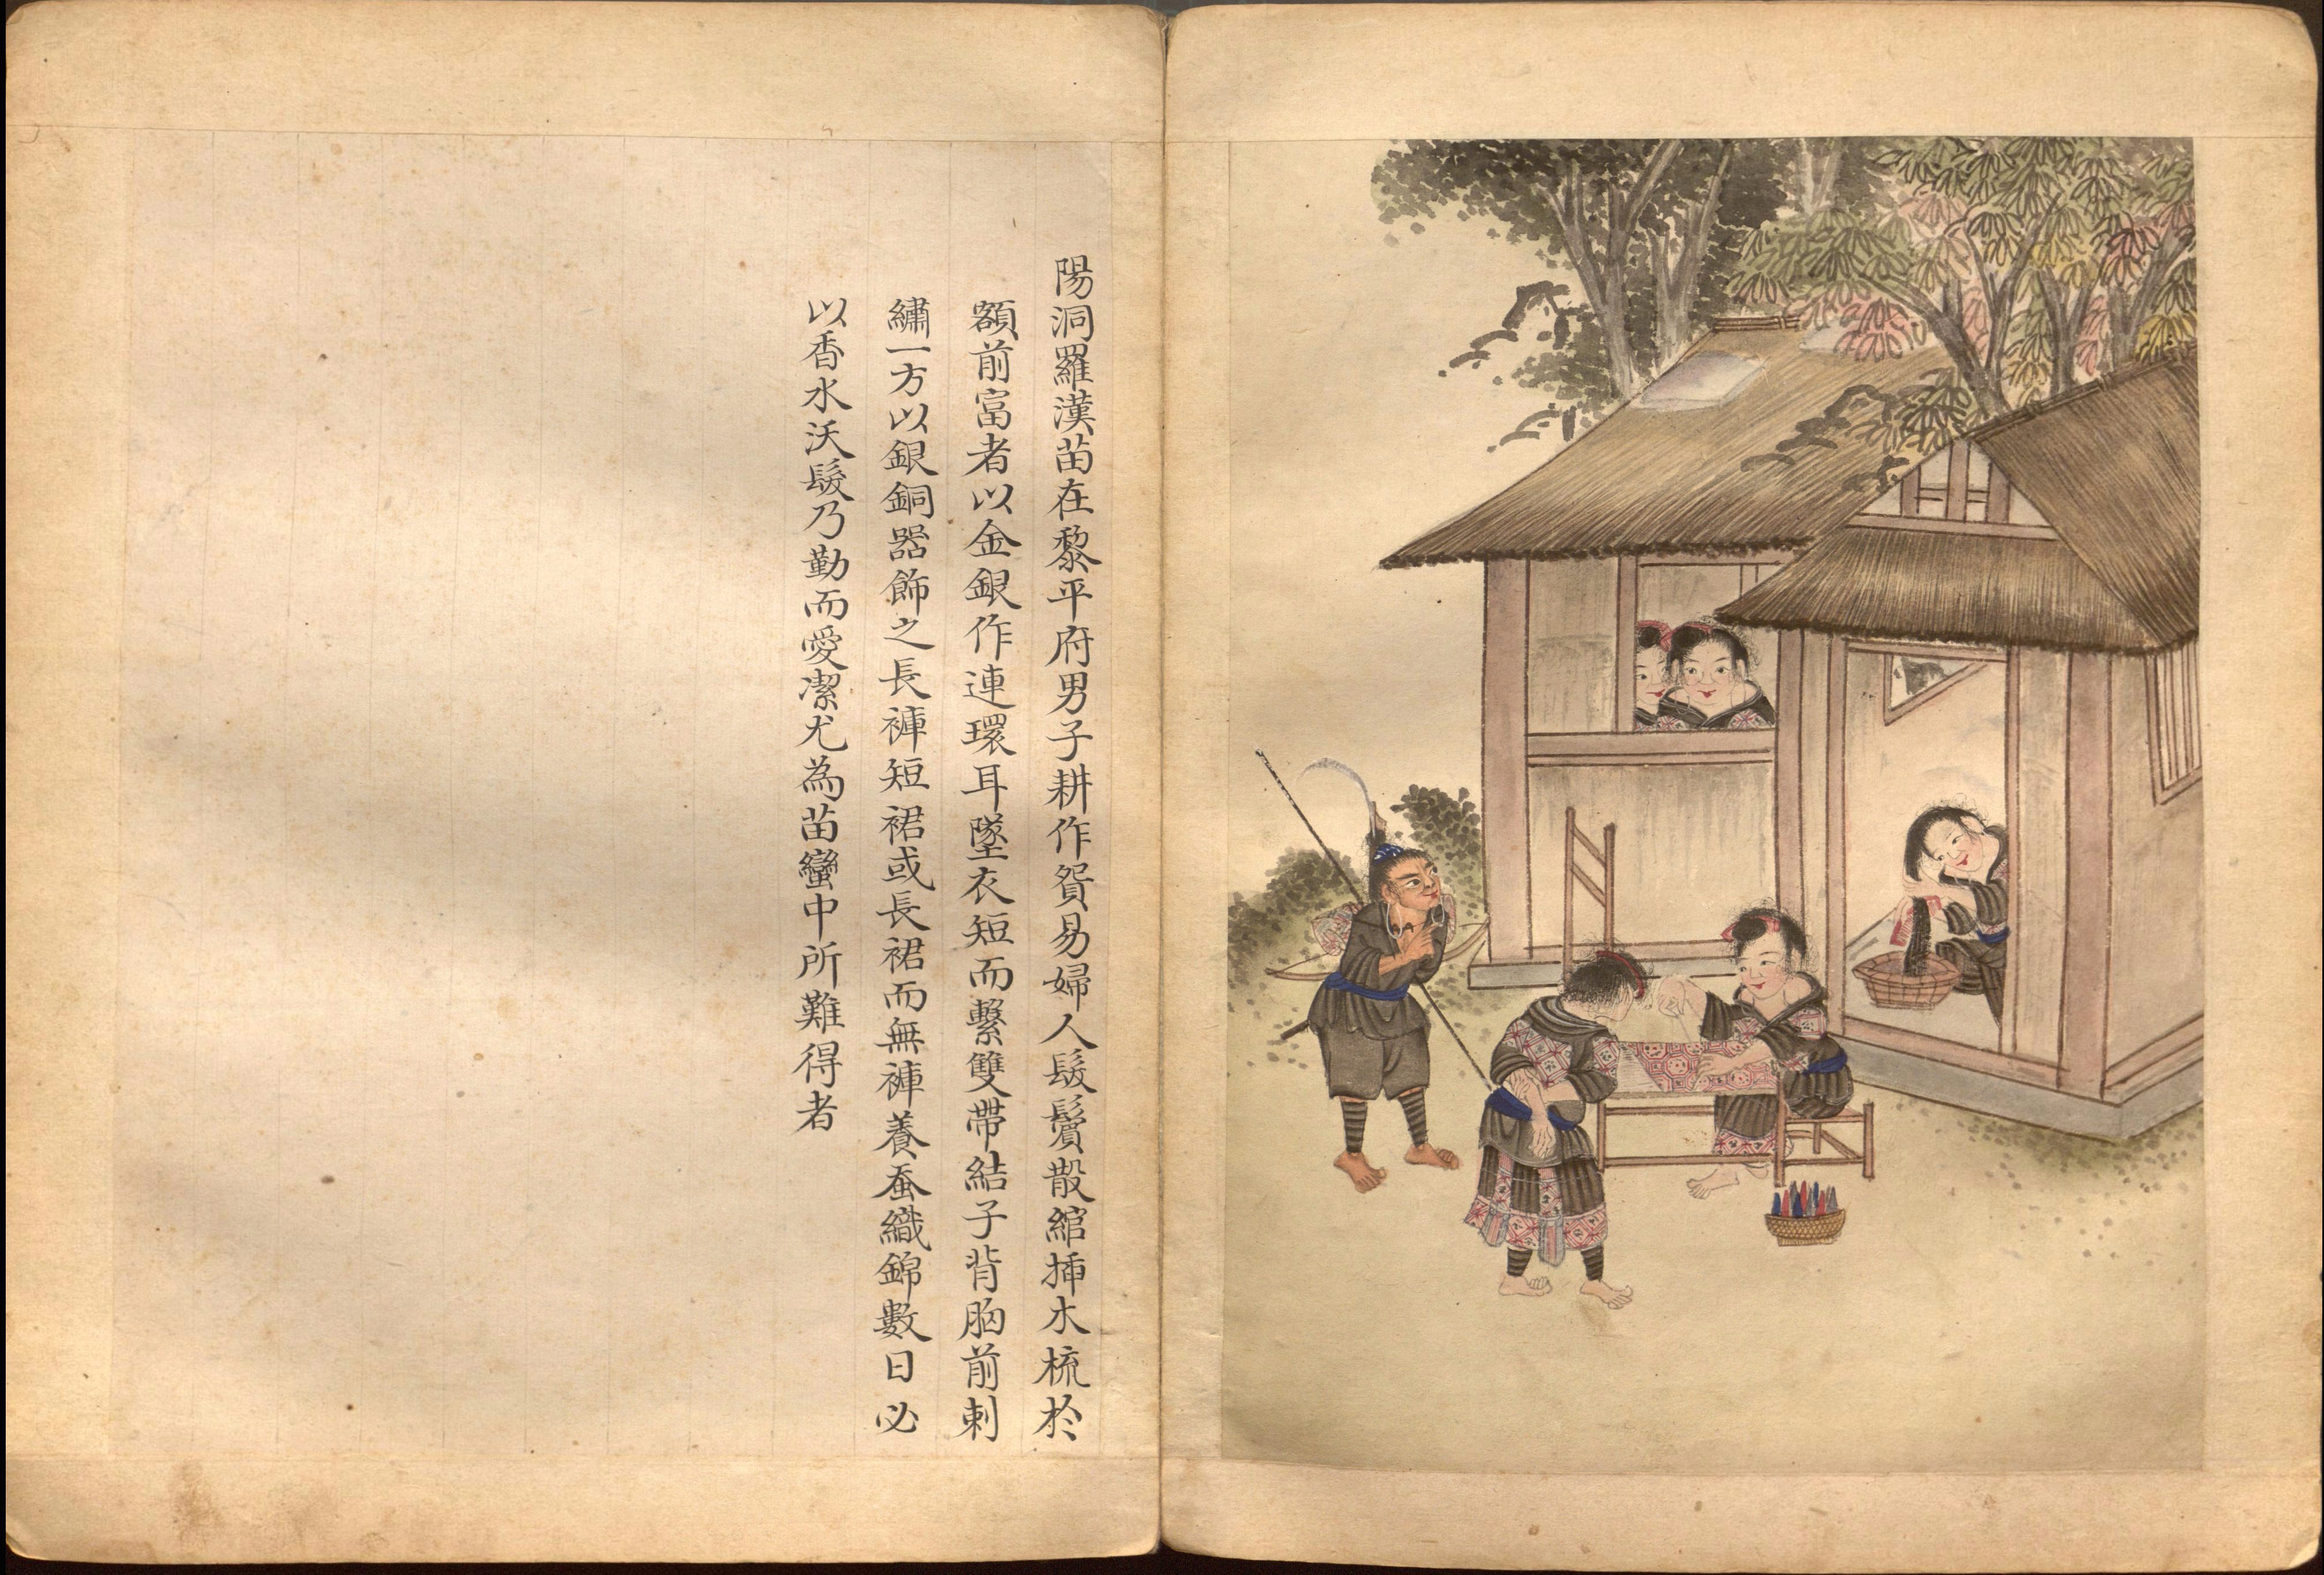 陽洞羅漢苗在黎平府男子耕作貿易婦人髮鬢散綰插木梳於
額前富者以金銀作連環耳墜衣短而繫雙帶結子背胸前刺
繡一方以銀銅器飾之長褲短裙或長裙而無褲養蚕織錦數日必
以香水沃髮乃勤而愛潔尤為苗蠻中所難得者